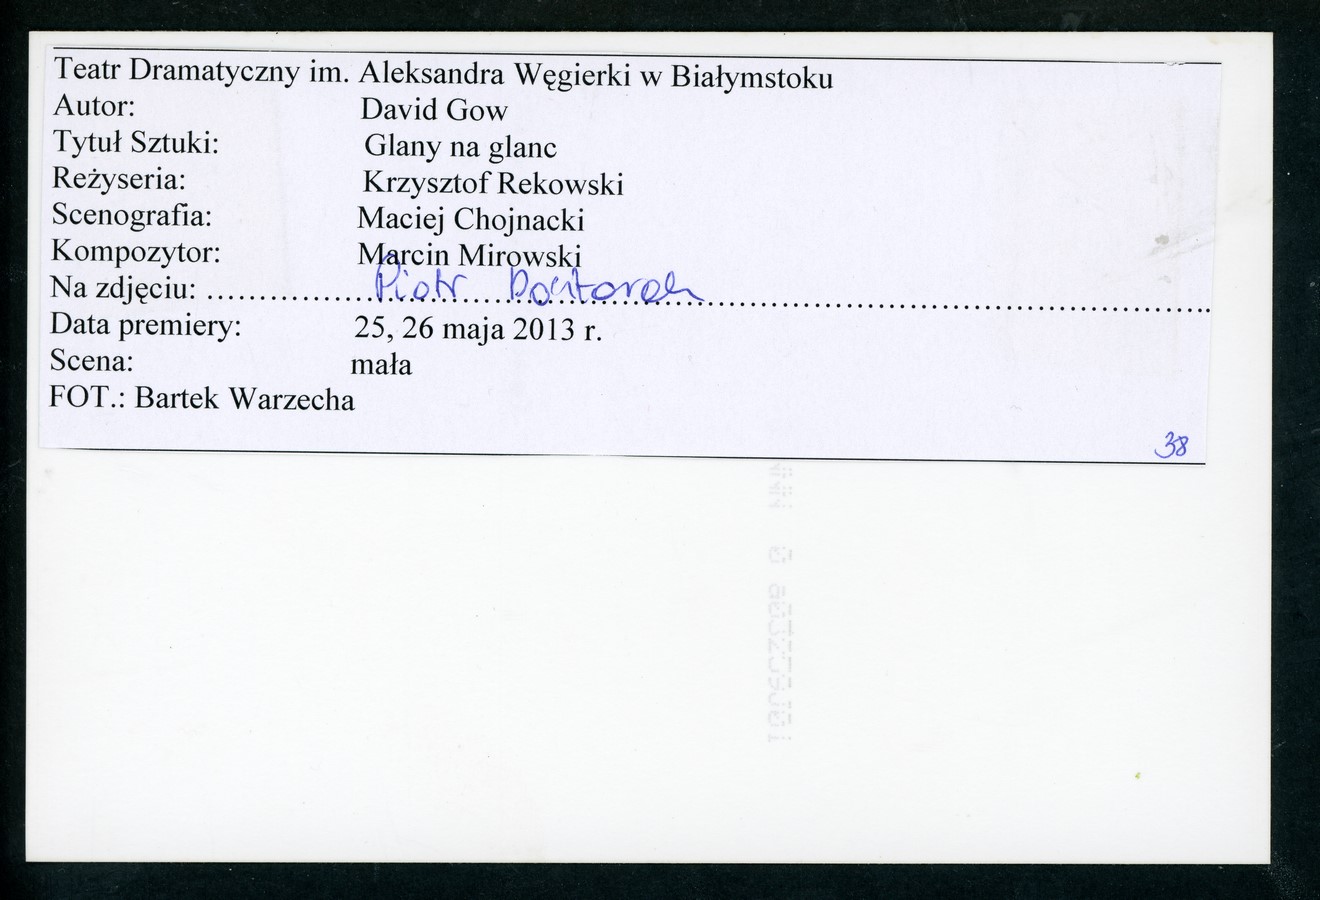 Teatr Dramatyczny im. Aleksandra Węgierki w Białymstoku
Autor: David Gow
Tytuł Sztuki: Glany na glanc
Reżyseria: Krzysztof Rekowski
Scenografia: Maciej Chojnacki
Kompozytor: Marcin Mirowski
Na zdjęciu: Piotr
Data premiery: 25, 26 maja 2013 r.
Scena: mała
FOT.: Bartek Warzecha
38